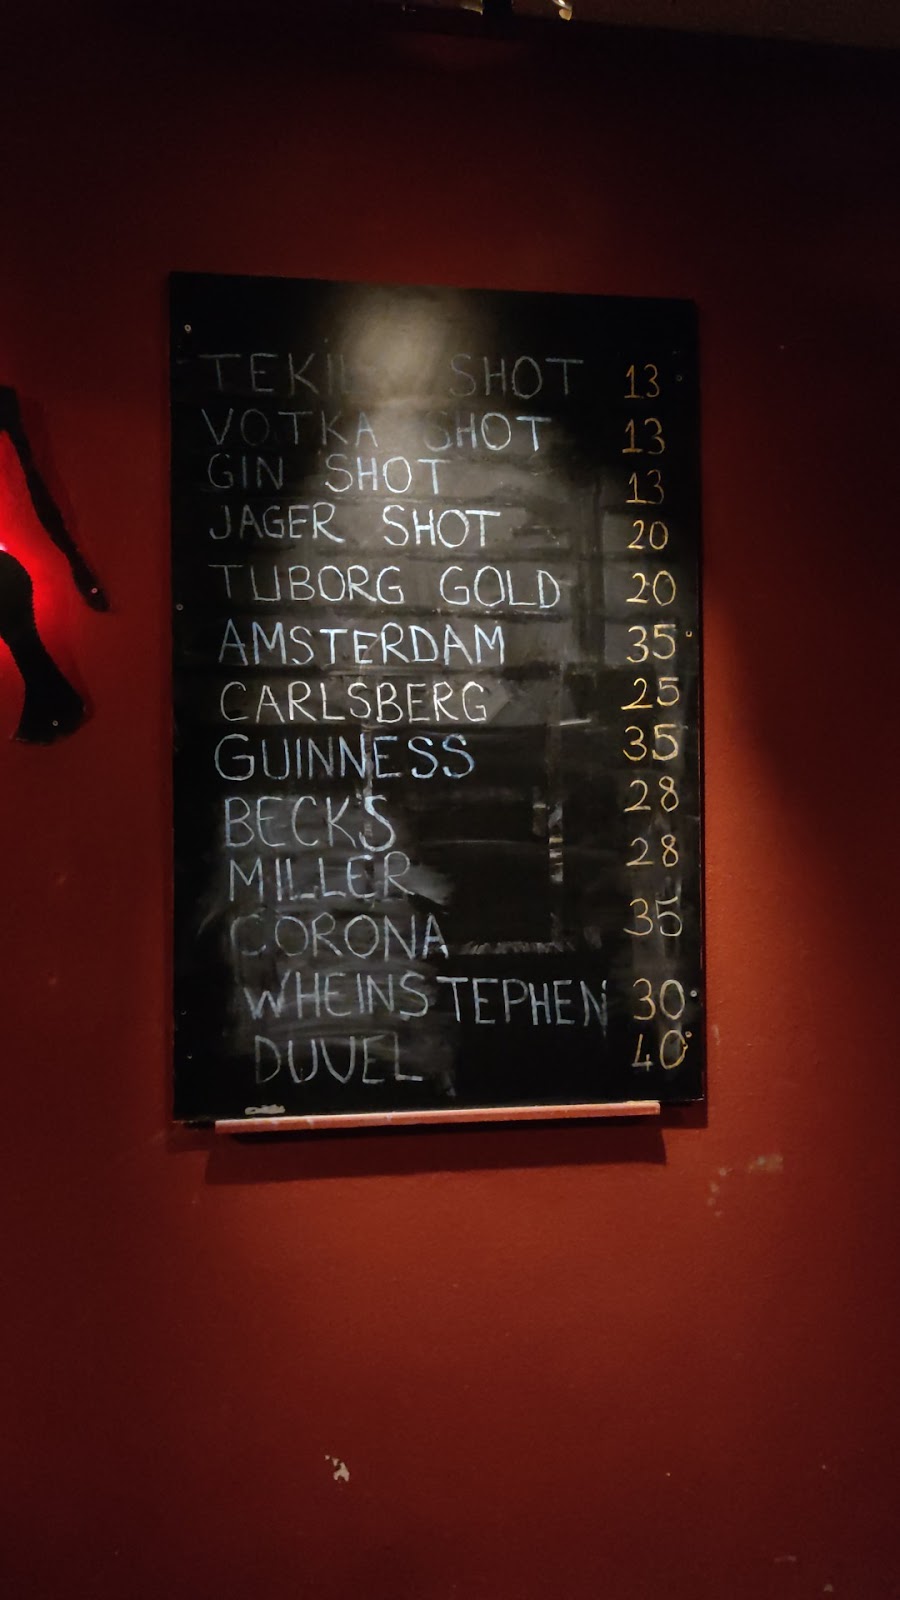 SHOT 13
VOTKA SHOT 13
GIN SHOT 13
JAGER SHOT 20
TUBORG GOLD 20
AMSTERDAM 35
CARLSBERG 25
GUINNESS 35
BECKS 28
MILLER 28
CORONA 35
WHEINSTEPHEN 30
DUVEL 40